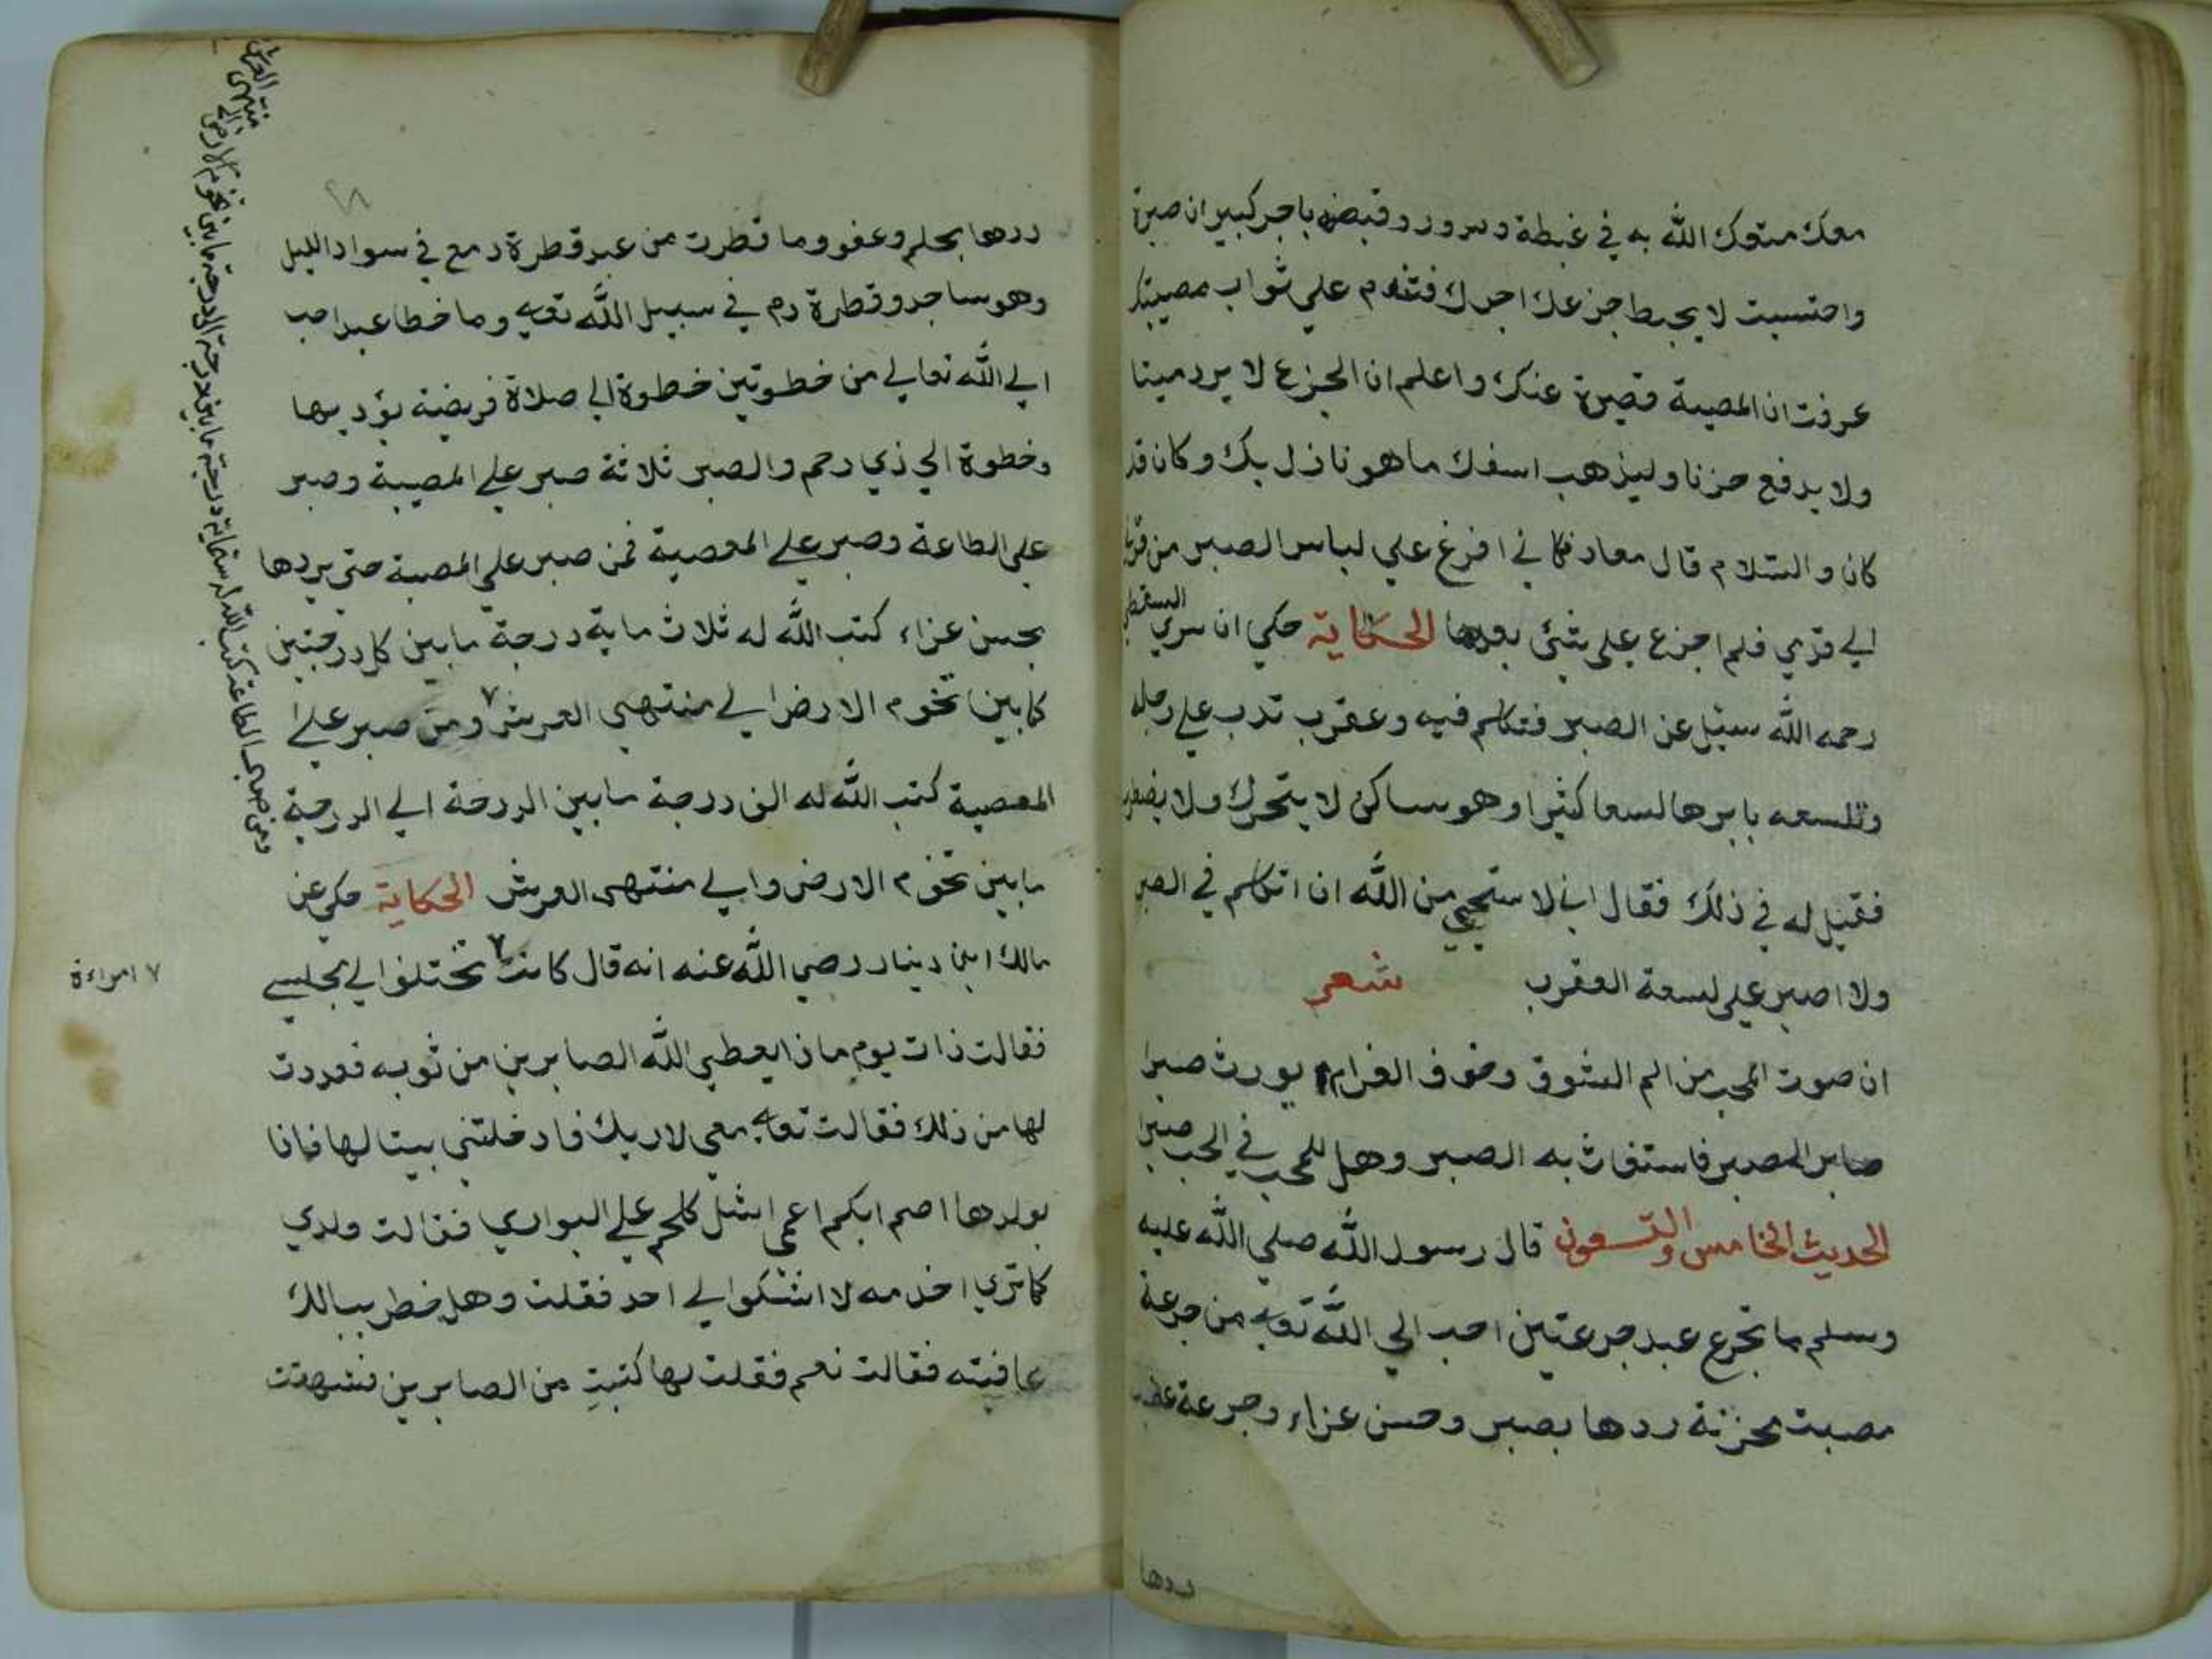 معك متعك الله به في غبطة وسرور وقبضه باجر كبير ان صبرة
واحتسبت لا يحبط جزعك اجرك فتندم علي ثواب مصيبتك
عرفت ان المصيبة قصيرة عنك واعلم ان الجزع لا يرد ميتا
ولا يدفع حزنا وليذهب اسفك ما هو نازل بك وكان قد
كان والسلام قال معاد فكاني افرغ علي لباس الصبر من
الي قدمي فلم اجزع على شئ بعدها الحكاية حكي ان سري السقطي
رحمه الله سئل عن الصبر فتكلم فيه وعقرب تدب علي رجله
وتلسعه بابرها لسعا كثيرا وهو ساكن لا يتحرك ولا
فقيل له في ذلك فقال اني لاستحيي من الله ان اتكلم في الصبر
ولا اصبر علي لسعة العقرب شعر
ان صوت المحب من الم الشوق وخوف الفراق يورث ضرا
صابر الصبر فاستغاث به الصبر وهل للمحب في الحب صبرا
الحديث الخامس والتسعون قال رسول الله صلي الله عليه
وسلم ما تجرع عبد جرعتين احب الي الله تعالي من جرعة
مصيبة محزنة ردها بصبر وحسن عزاء وجرعة غضب
ردها
ردها بحلم وعفو وما قطرت من عبد قطرة دمع في سواد الليل
وهو ساجد وقطرة دم في سبيل الله تعالي وما خطا عبد احب
الي الله تعالي من خطوتين خطوة الي صلاة فريضة يؤديها
وخطوة الي ذي رحم والصبر ثلاثة صبر علي المصيبة وصبر
علي الطاعة وصبر علي المعصية فمن صبر علي المصيبة حتي يردها
بحسن عزاء كتب الله له ثلاث ماية درجة ما بين كل درجتين
كما بين تخوم الارض الي منتهي العرش ٧ ومن صبر علي ا
المعصية كتب الله له الف درجة ما بين الدرجة الي الدرجة
ما بين تخوم الارض والي منتهي العرش الحكاية حكي عن
مالك ابن دينار رضي الله عنه انه قال كانت ٧ تختلف الي مجلسي
فقالت ذات يوم ماذا يعطي الله الصابرين من ثوبه فعددت
لها من ذلك فقالت تعالي معي لاريك فادخلتني بيتا لها فاذا
بولدها اصم ابكم اعمي اشل كلحم علي البواري فقالت ولدي
كما تري اخدمه لا اشكو الي احد فقلت وهل خطر ببالك
عافيته فقالت نعم فقلت لها كنت من الصابرين فشهقت
٧ امراءة
ومن صبر علي الطاعة كتب الله له ستماية درجة ما بين الدرجة الي الدرجة ما بين تخوم الارض الي
منتهي العرش
٢٨